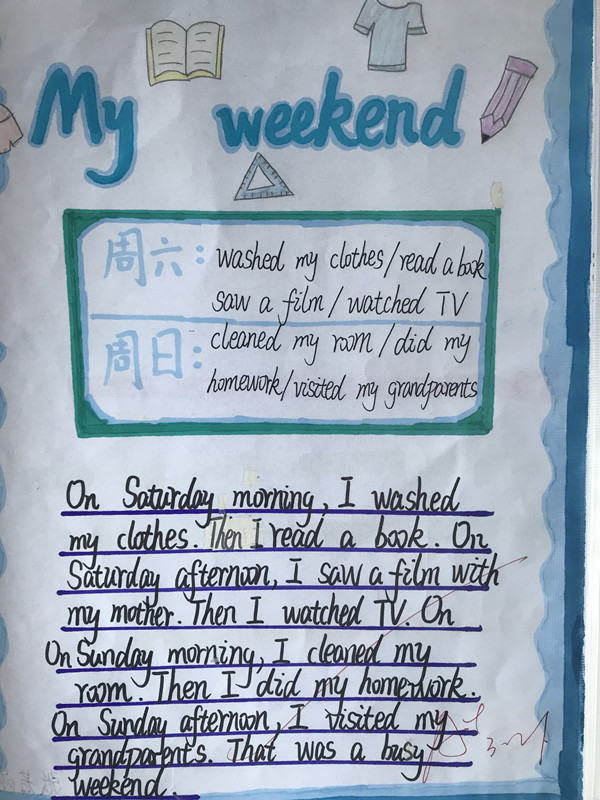 My weekend
周六: washed my clothes/read a book
saw a film/watched TV
周日: cleaned my room/did my
homework/visited my grandparents
On Saturday morning, I washed
my clothes. Then I read a book. On
Saturday afternoon, I saw a film with
my mother. Then I watched TV. On
On Sunday morning, I cleaned my
room. Then I did my homework.
On Sunday afternoon, I visited my
grandparents. That was a busy
weekend.